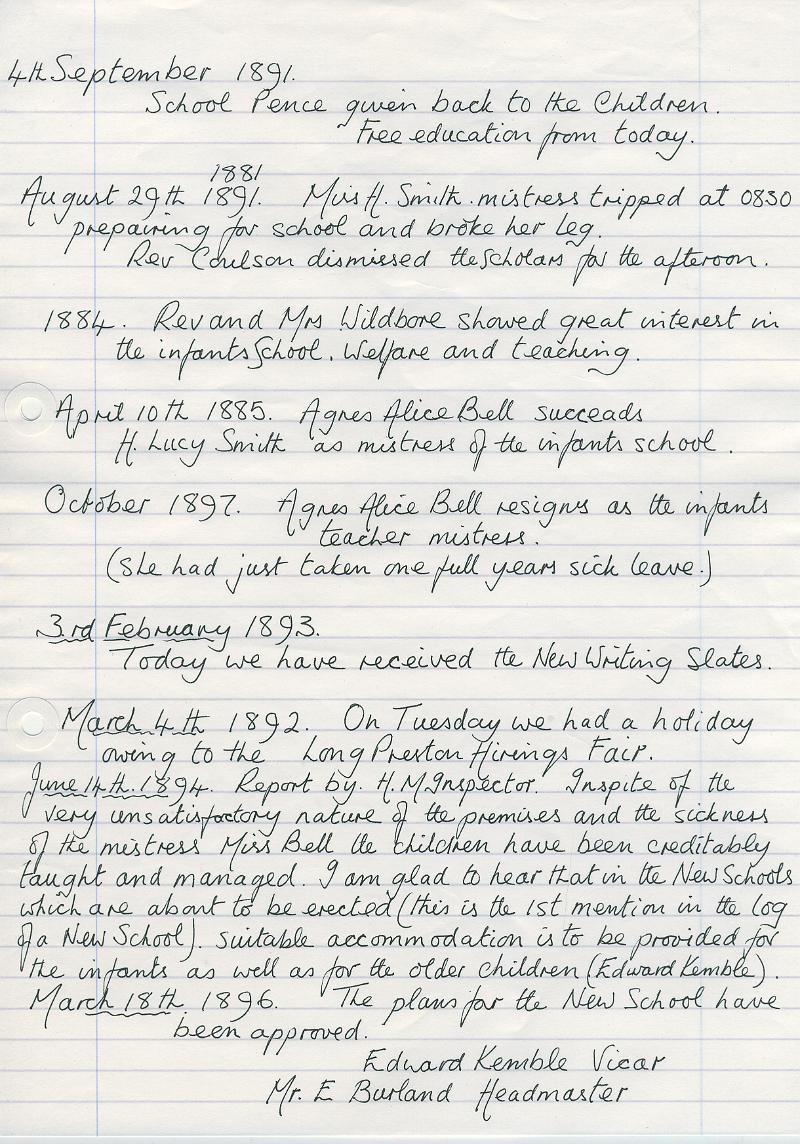 4th September 1891.
School Pence given back to the Children.
Free education from today.
1881
August 29th 1891. Miss H. Smith. mistress tripped at 0830
prepairing for school and broke her leg.
Rev Coulson dismissed the Scholars for the afternoon.
1884. Rev and Mrs Wildbore showed great interest in
the infants School. Welfare and teaching.
April 10th 1885. Agnes Alice Bell succeads
H. Lucy Smith as mistress of the infants school.
October 1897. Agnes Alice Bell resigns as the infants
teacher mistress.
(She had just taken one full years sick leave.)
3rd February 1893.
Today we have received the New Writing Slates.
March 4th 1892. On Tuesday we had a holiday
owing to the Long Preston Hirings Fair.
June 14th. 1894. Report by. H.M. Inspector. Inspite of the
very unsatisfactory nature of the premises and the sickness
of the mistress Miss Bell the children have been creditably
taught and managed. I am glad to hear that in the New Schools
which are about to be erected (this is the 1st mention in the log
of a New School). suitable accommodation is to be provided for
the infants as well as for the older children (Edward Kemble).
March 18th. 1896. The plans for the New School have
been approved.
Edward Kemble Vicar
Mr. E Burland Headmaster